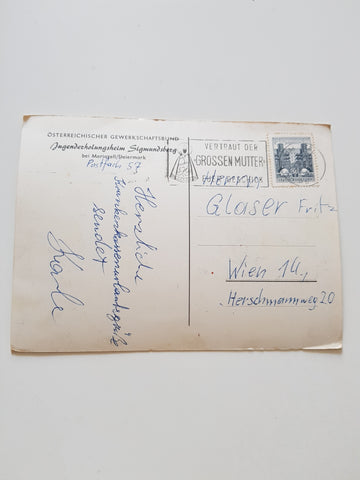 ÖSTERREICHISCHER GEWERKSCHAFTSBUND
Jugenderholungsheim Sigmundsberg
bei Mariazell/Steiermark
Postfach 57
Herzliche
Krankenkassenurlaubsgrüße
sendet
Karle
VERTRAUT DER
GROSSEN MUTTER
Herrn
Glaser Fritz
Wien 14.,
Herschmannweg 20